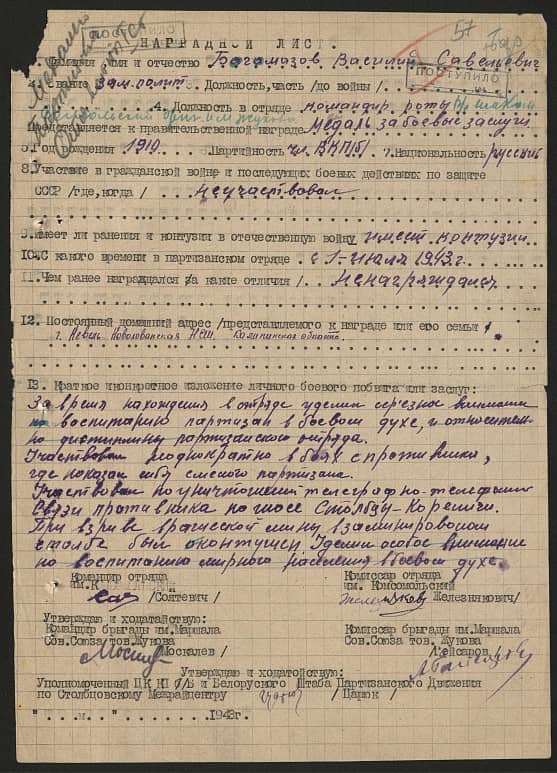 57
ПОСТУПИЛО
НАГРАДНОЙ ЛИСТ.
Фамилия имя и отчество Богомазов Василий Савельевич
ПОСТУПИЛО
звание зам. полит 3. Должность, часть /до войны/
4. Должность в отряде командир роты
Представляется к правительственной награде Медаль за боевые заслуги
5. Год рождения 1910 Партийность чл. ВКП(б) 7. Национальность русский
8. Участие в гражданской войне и последующих боевых действиях по защите
СССР /где, когда/ не участвовал
9. имеет ли ранения и контузии в отечественную войну имеет контузии
10. С какого времени в партизанском отряде с 1-июля 1943 г.
11. Чем ранее награждался /за какие отличия/ не награждался
12. Постоянный домашний адрес /представляемого к награде или его семьи/
г. Невель НСШ. Калининская область.
13. Краткое и конкретное изложение личного боевого подвига или заслуг:
За время нахождения в отряде уделял серъезное внимание
по воспитанию партизан в боевом духе, и относитель
но дисциплины партизанского отряда.
Участвовал неоднократно в боях с противника,
где показал себя смелого партизана.
Участвовал по уничтожения телеграфно-телефонно
связи противника по шоссе Столбцы-Кореличи.
При взрыве вражеской мины в заминированом
столбе был оконтужен Уделял особое внимание
по воспитанию мирного населения в боевом духе.
Командир отряда Комиссар отряда
им. К им. Комсомольский
/Солтевич/ Железнякович/
Утверждаю и ходатайствую:
Командир бригады им. Маршала Комиссар бригады им. Маршала
Сов. Союза тов. Жукова Сов. Союза тов. Жукова
/Москалев/ /Лейсаров/
Утверждаю и ходатойствую:
Уполномоченный ЦК КП /б/Б и Белоруского Штаба Партизанского Движения
по Столбцовскому Межрайцентру /Царюк/
" " 1943г.